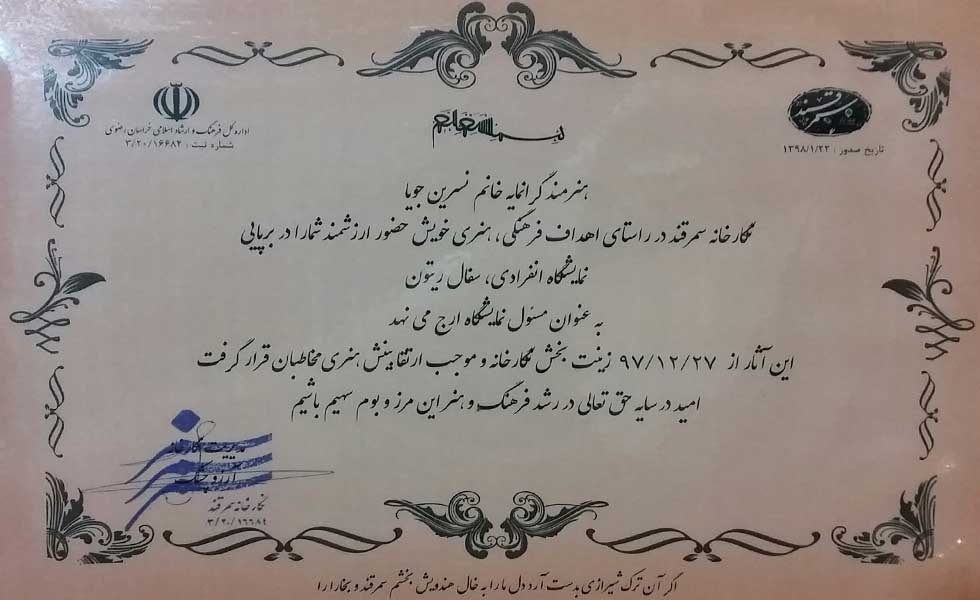 بسمه تعالی
اداره کل فرهنگ و ارشاد اسلامی خراسان رضوی
شماره ثبت : ۳/۲۰/۱۶۶۸۴
سمرقند
تاریخ صدور : ۱۳۹۸/۱/۲۲
هنرمند گرانمایه خانم نسرین جویا
نگارخانه سمرقند در راستای اهداف فرهنگی، هنری خویش حضور ارزشمند شما را در برپایی
نمایشگاه انفرادی، سفال ریتون
به عنوان مسئول نمایشگاه ارج می نهد
این آثار از ۹۷/۱۲/۲۷ زینت بخش نگارخانه و موجب ارتقا بینش هنری مخاطبان قرار گرفت
امید در سایه حق تعالی در رشد فرهنگ و هنر این مرز و بوم سهیم باشیم
مدیریت نگارخانه
آرزو
نگارخانه سمرقند
۳/۲۰/۱۶۶۸۴
اگر آن ترک شیرازی بدست آرد دل ما را به خال هندویش بخشم سمرقند و بخارا را